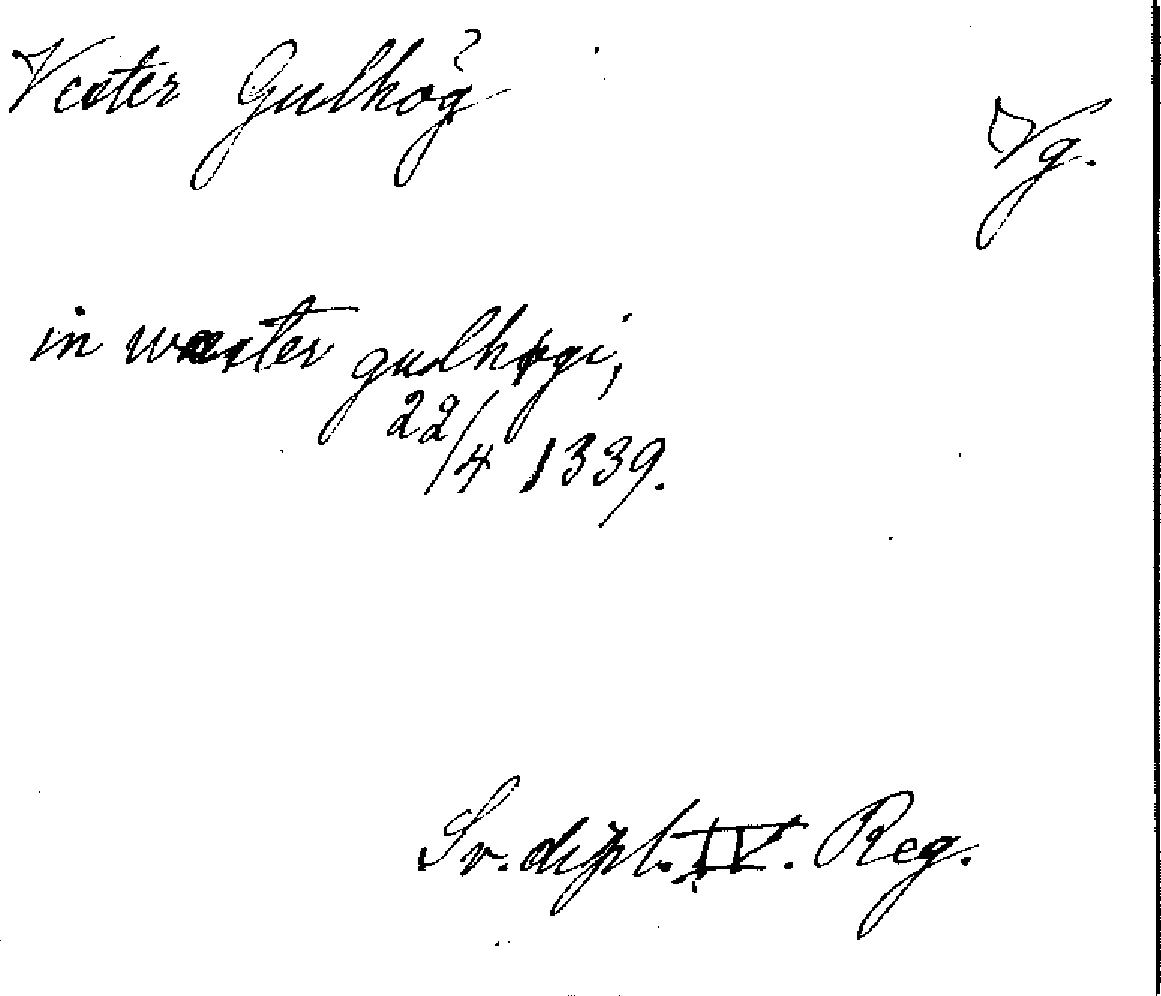 Vester Gulhög?
Vg.
in wæster gulhøgi,
22/4 1339.
Sv. dipl. IV. Reg.